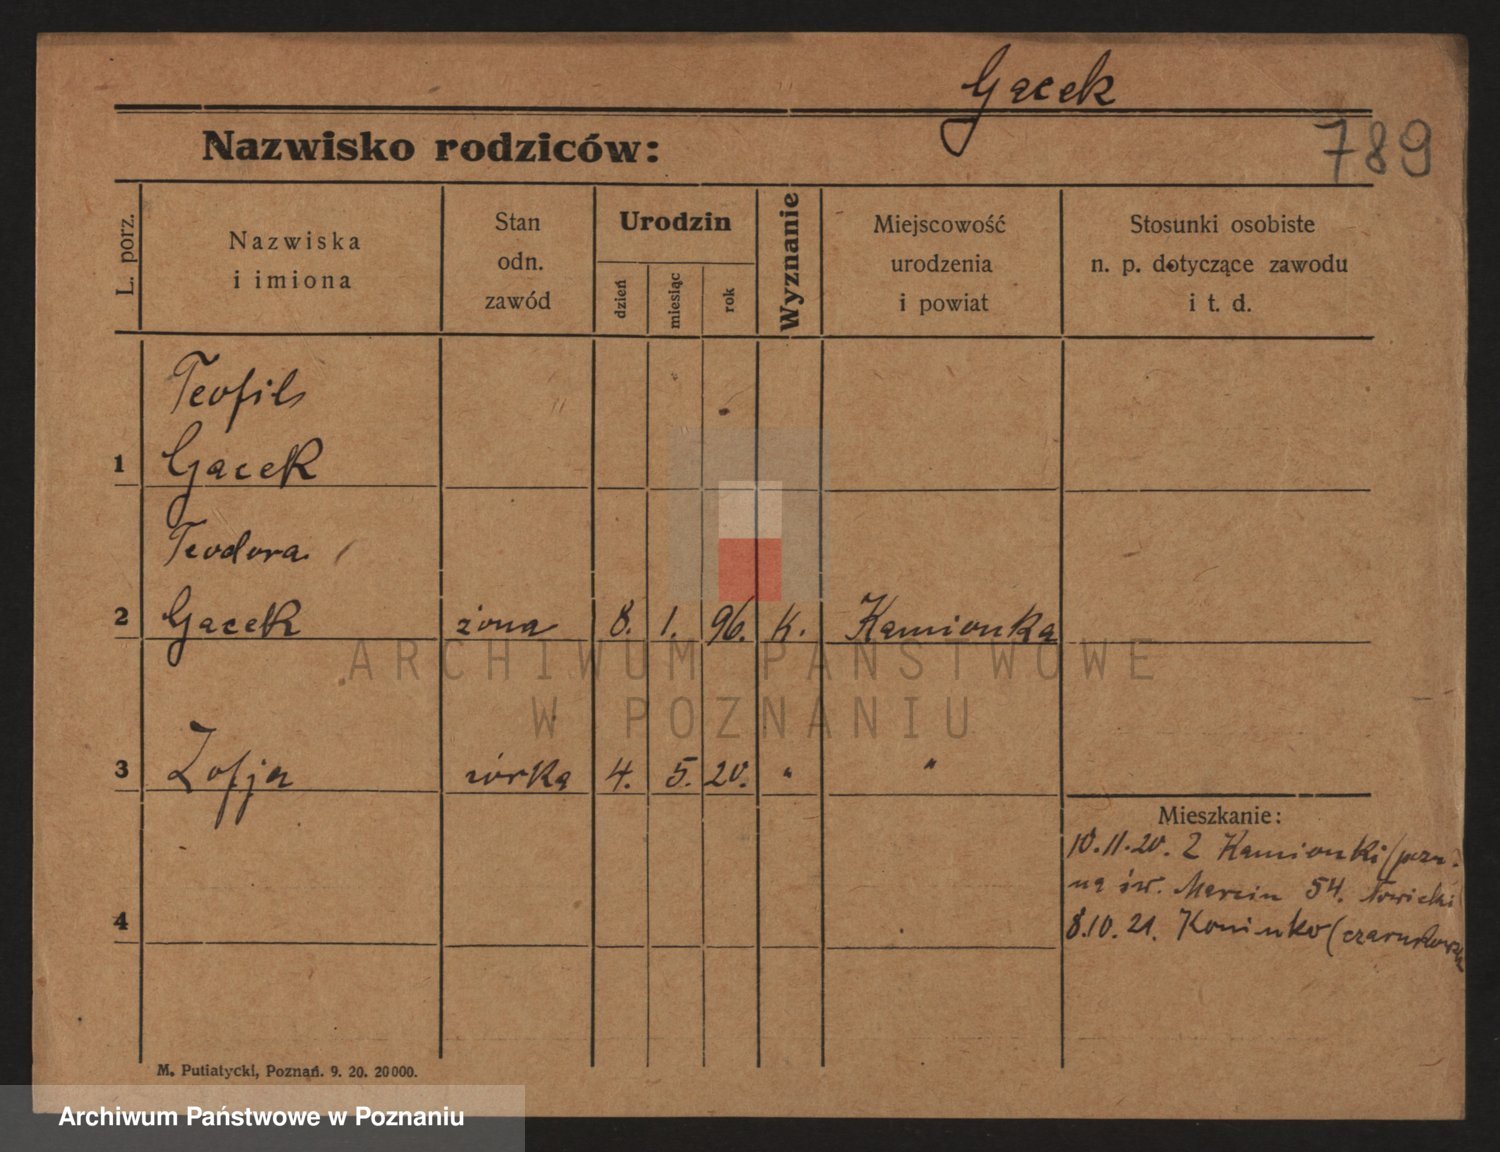 Gącek
789
Nazwisko rodziców:
L. porz.
Nazwiska
i imiona
Stan
odn.
zawód
Urodzin
dzień
miesiąc
rok
Wyznanie
Miejscowość
urodzenia
i powiat
Stosunki osobiste
n. p. dotyczące zawodu
i t. d.
Teofil
1 Gacek
Teodora
2 Gacek żona 8. 1. 96. k. Kamionka
3 Zofja córka 4. 5. 20. " "
Mieszkanie:
10.11.20. Z Kamionki
na św. Marcin 54. Nowicki
8.10.21. Koninko (
4
M. Putiatycki, Poznań. 9. 20. 20000.
ARCHIWUM PAŃSTWOWE
W POZNANIU
Archiwum Państwowe w Poznaniu